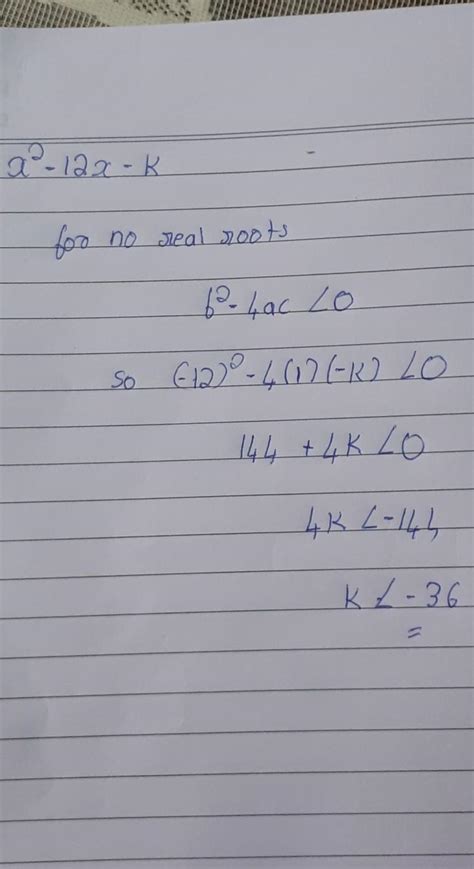 x² - 12x - k
for no real roots
b² - 4ac < 0
so (-12)² - 4(1)(-k) < 0
144 + 4k < 0
4k < -144
k < -36